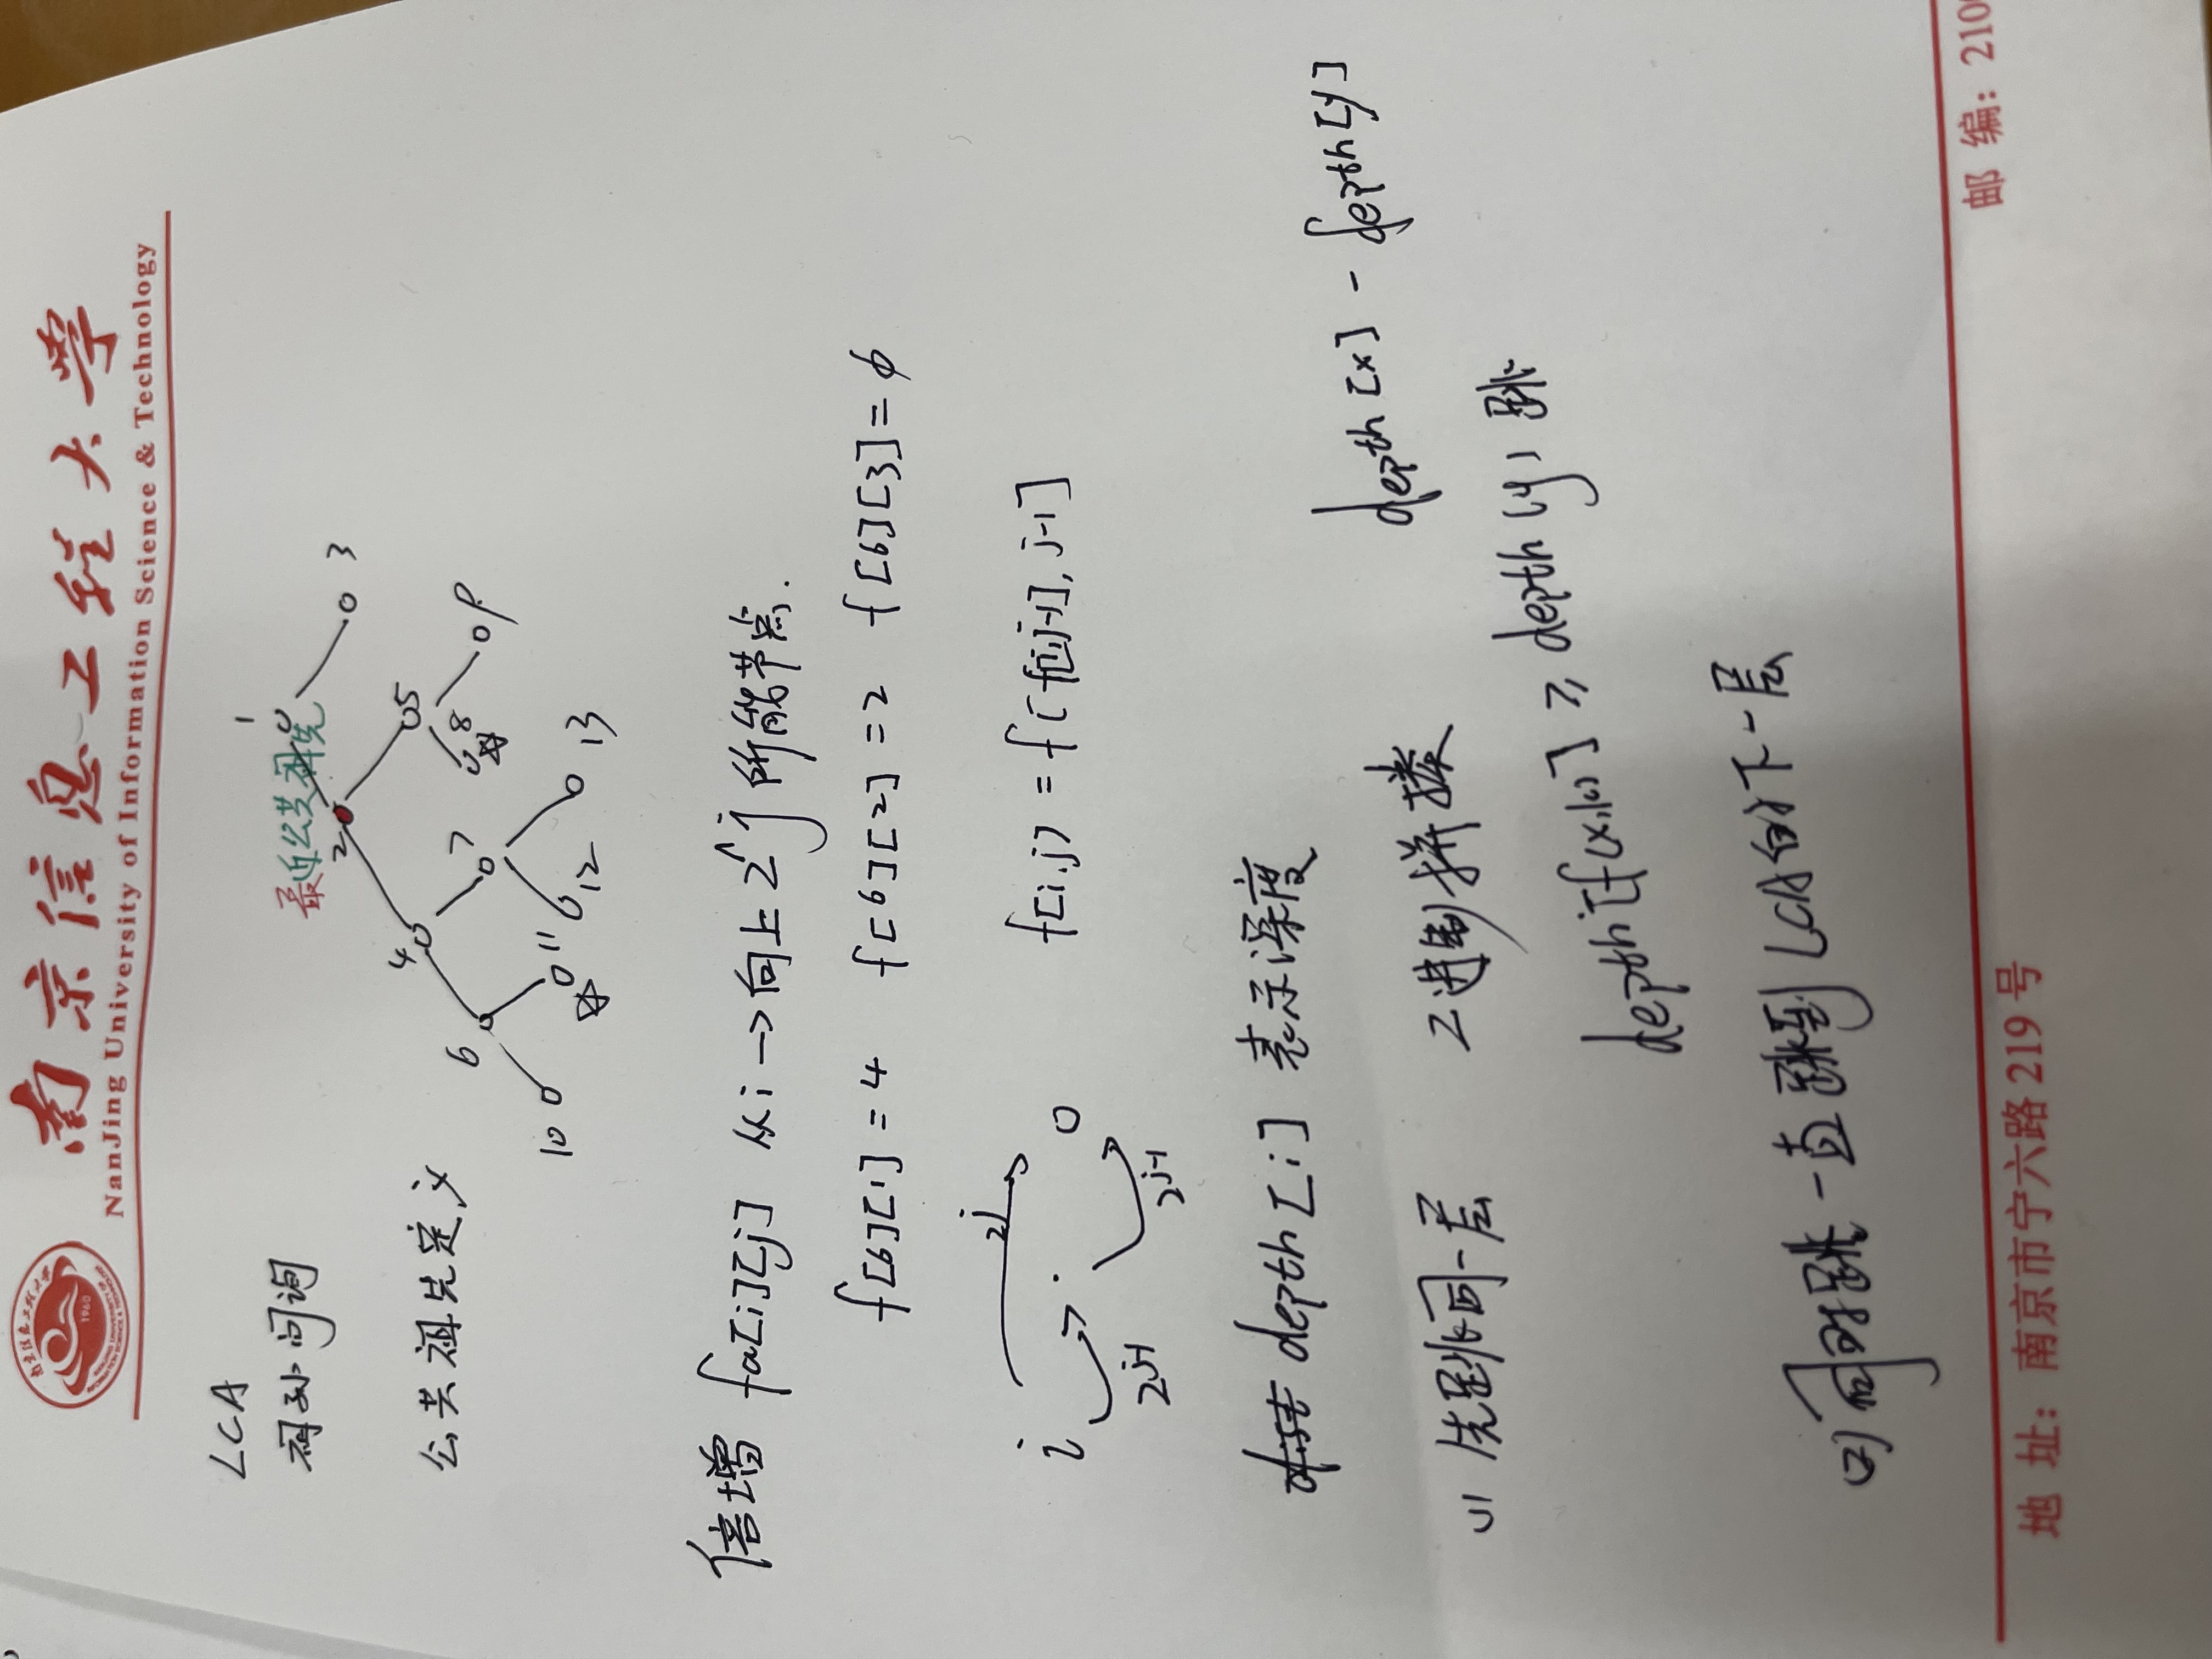 南京信息工程大学
1960
NanJing University of Information Science & Technology
LCA
祖孙问询
公共祖先定义
最近公共祖先
1
2
3
4
5
6
7
8
9
10
11
12
13
倍增 fa[i][j] 从i→向上2^j所能节点.
f[6][1]=4 f[6][2]=2 f[6][3]=∅
2^j
i
2^j-1
2^j-1
f[i.j) = f[f[i,j-1], j-1]
dist depth[i] 表示深度
(1) 先跳同一层 二进制拼凑 depth[x] - depth[y]
depth[f(x,k)] ≥ depth(y) 跳
(2) 同时跳一直跳到LCA的下一层
邮 编: 210
地 址: 南京市宁六路 219 号